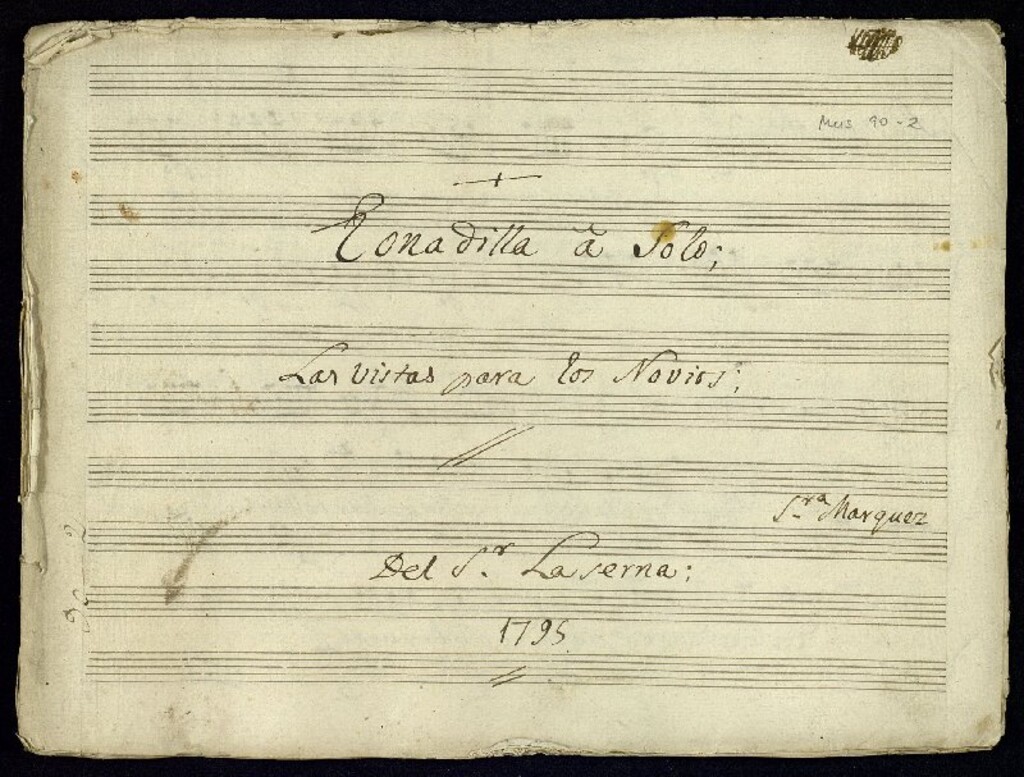 Mus 90-2
Tonadilla â Solo;
Las vistas para los Novios;
S.ra Marquez
Del S.r Laserna:
1795